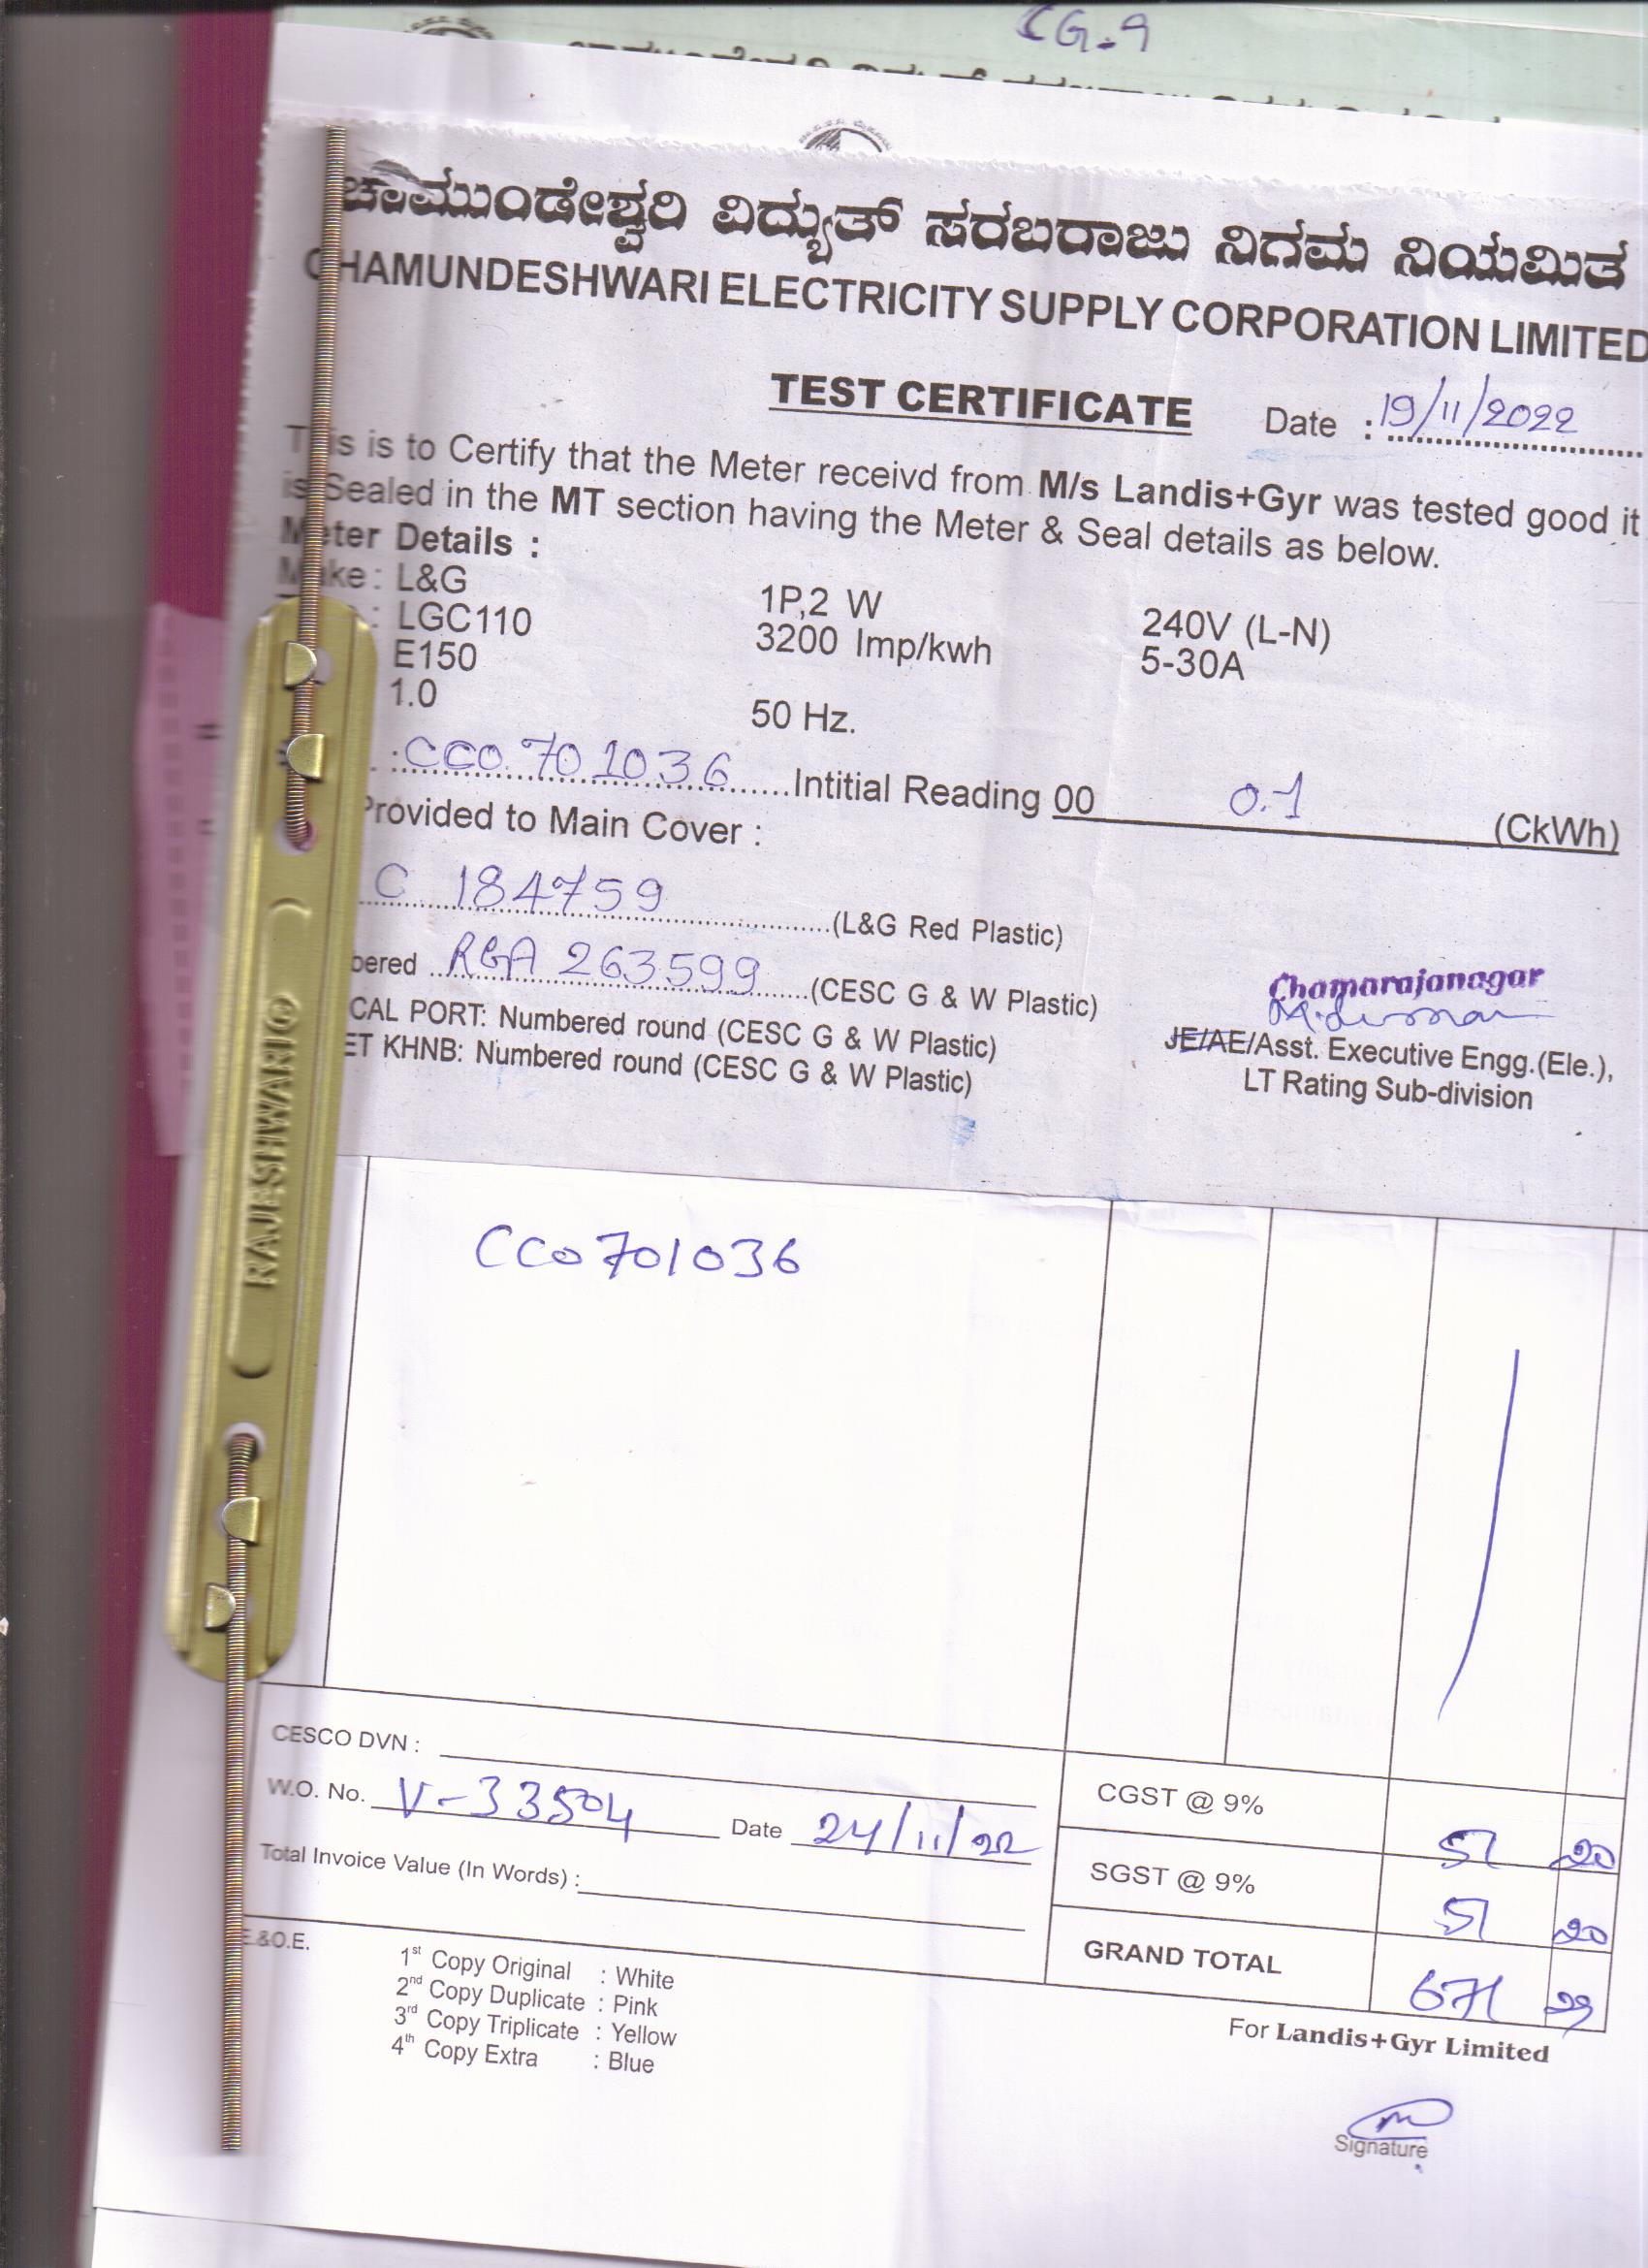 CG-9
ಚಾಮುಂಡೇಶ್ವರಿ ವಿದ್ಯುತ್ ಸರಬರಾಜು ನಿಗಮ ನಿಯಮಿತ
CHAMUNDESHWARI ELECTRICITY SUPPLY CORPORATION LIMITED
TEST CERTIFICATE Date : 19/11/2022
This is to Certify that the Meter receivd from M/s Landis+Gyr was tested good it
is Sealed in the MT section having the Meter & Seal details as below.
Meter Details :
Make : L&G 1P,2 W 240V (L-N)
: LGC110 3200 Imp/kwh 5-30A
E150
1.0 50 Hz.
: CC0701036 Intitial Reading 00 0.1 (CkWh)
Provided to Main Cover :
C 184759 (L&G Red Plastic)
bered RGA 263599 (CESC G & W Plastic)
CAL PORT: Numbered round (CESC G & W Plastic)
ET KHNB: Numbered round (CESC G & W Plastic)
Chamarajanagar
JE/AE/Asst. Executive Engg.(Ele.),
LT Rating Sub-division
RAJESHWARI ®
CC0701036
CESCO DVN :
W.O. No. V-33504 Date 24/11/22
Total Invoice Value (In Words) :
CGST @ 9% 51 20
SGST @ 9% 51 20
GRAND TOTAL 671 29
E.&O.E.
1st Copy Original : White
2nd Copy Duplicate : Pink
3rd Copy Triplicate : Yellow
4th Copy Extra : Blue
For Landis+Gyr Limited
Signature